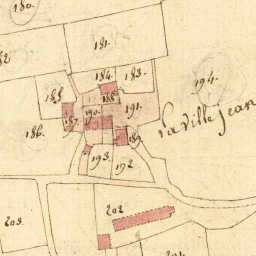 180.
181.
182.
184.
183.
194.
185.
188.
190.
191.
187.
186.
189.
La Ville Jean
193.
192.
203.
202
204.